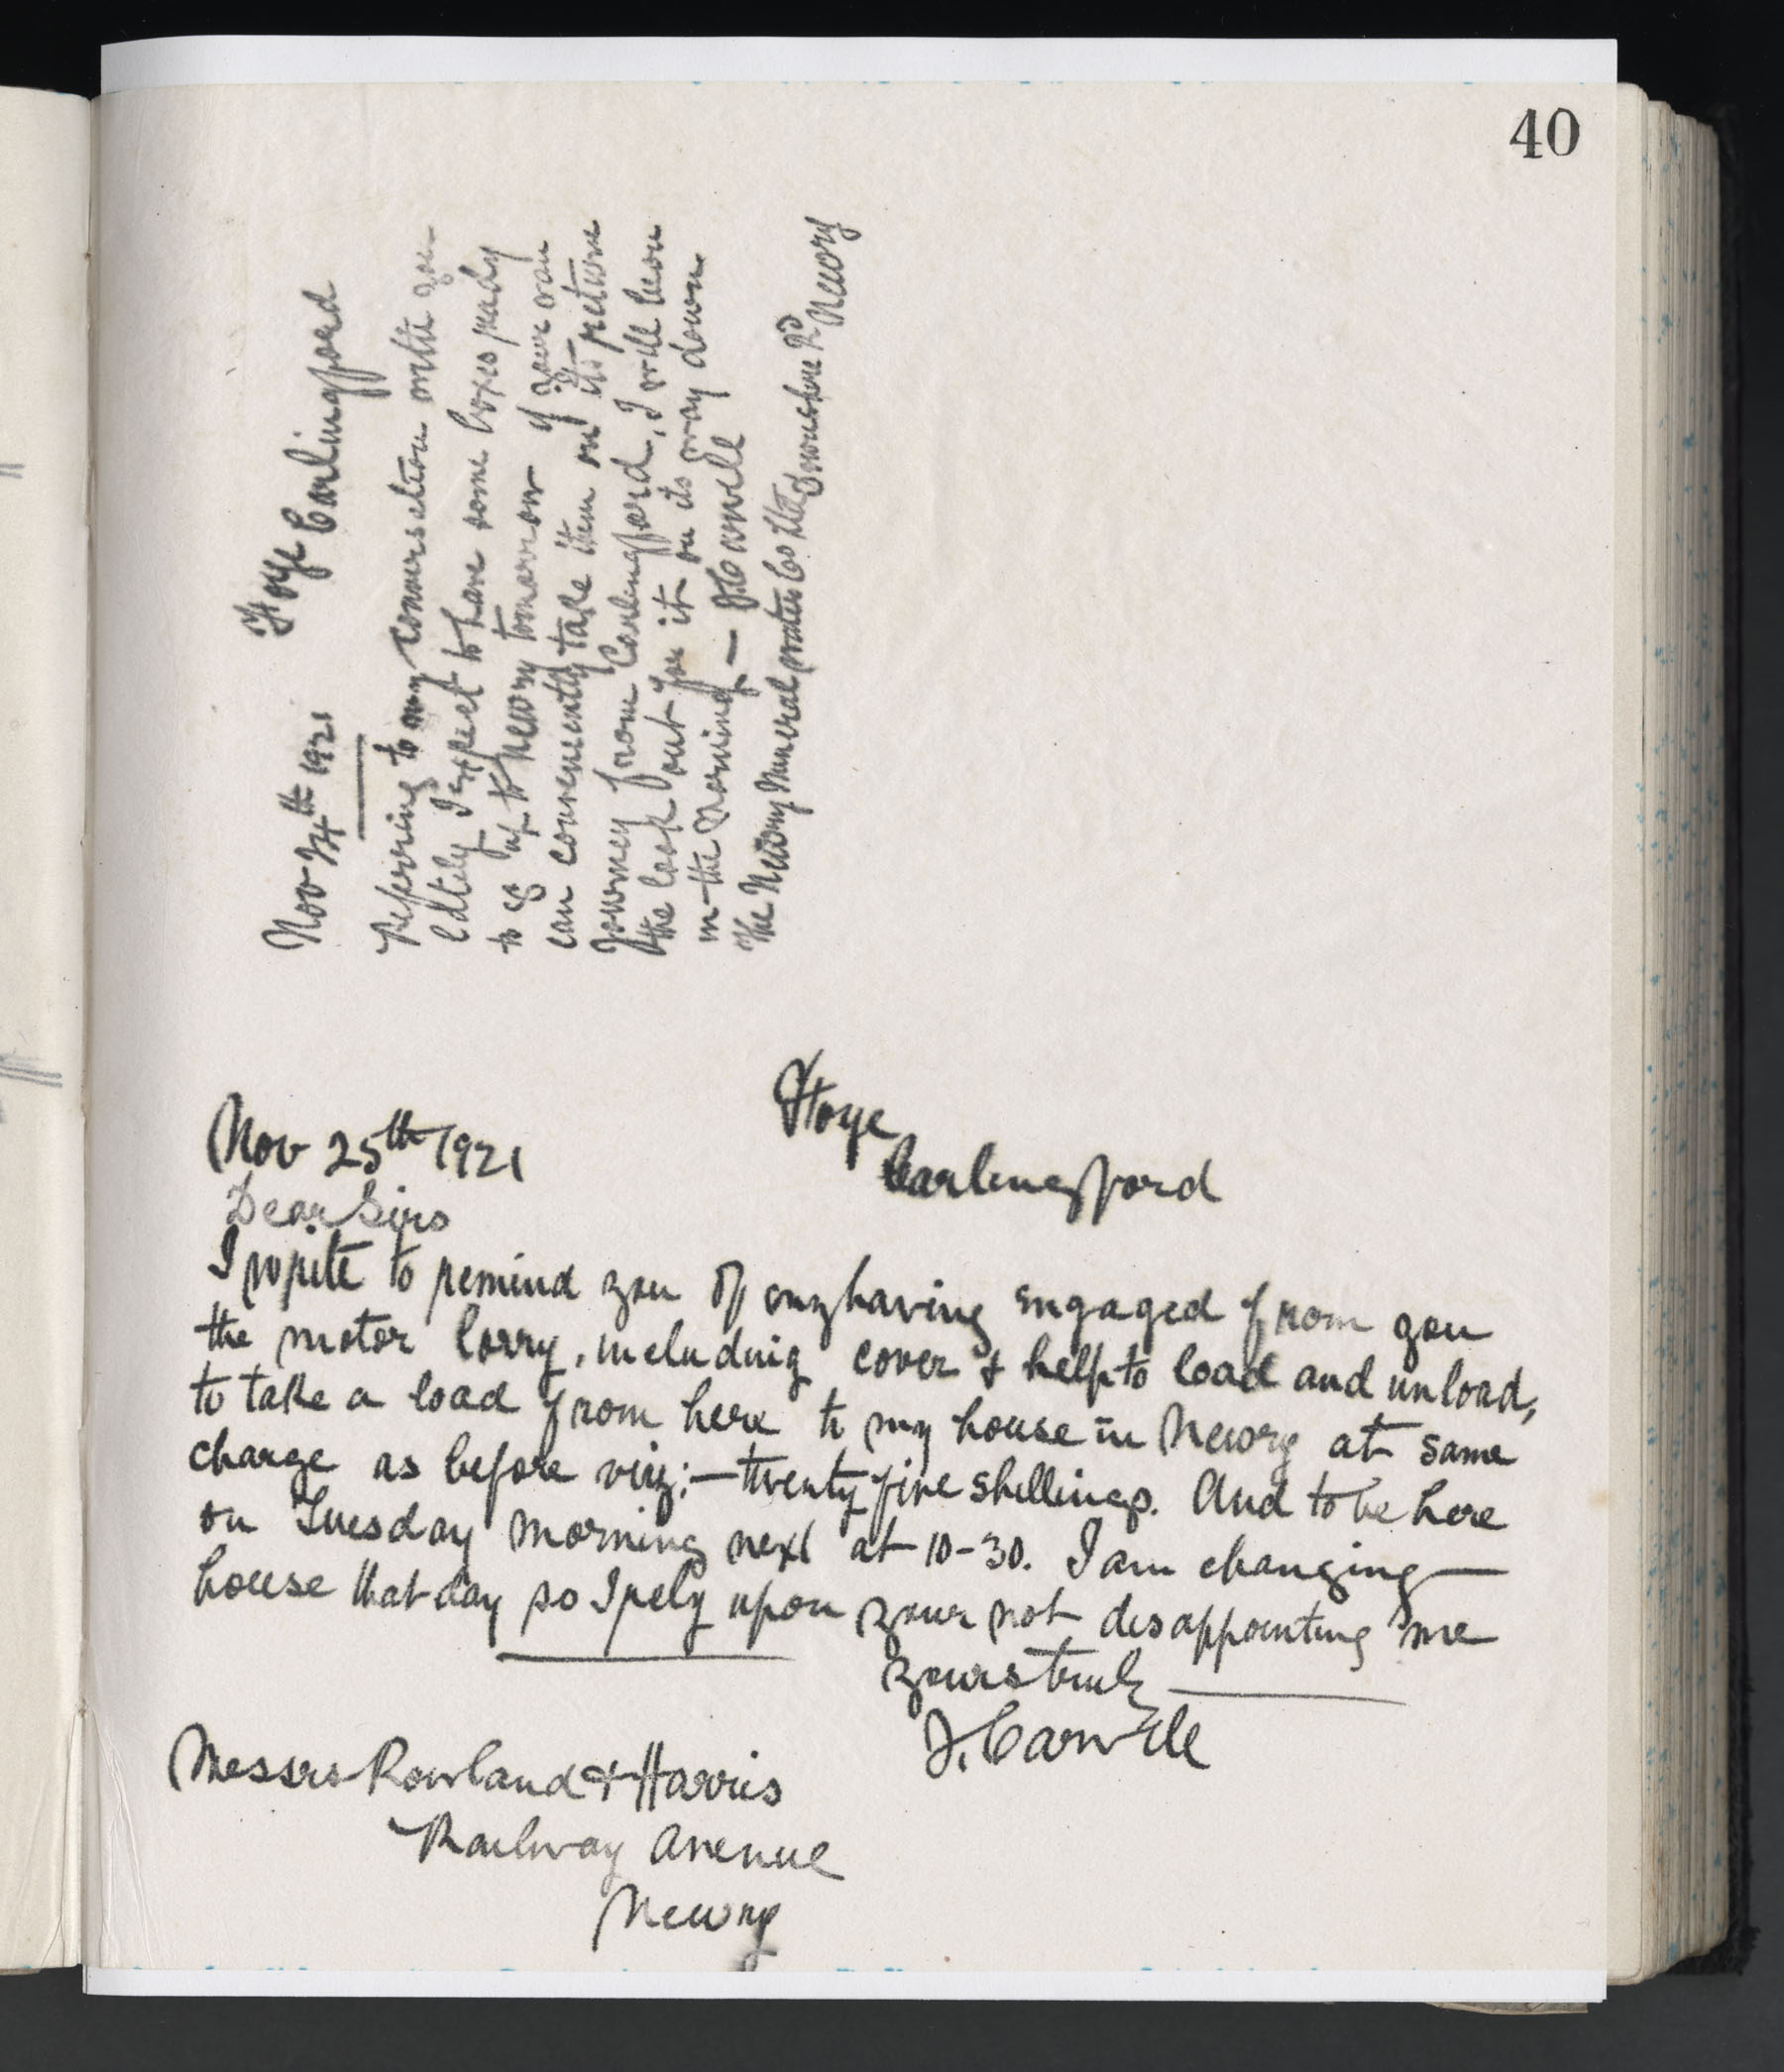 40
Nov 24th 1921 Hoye Carlingford
Referring to my conversation with you
lately I expect to have some boxes ready
to go up to Newry tomorrow if your van
can conveniently take them on its return
journey from Carlingford, I will be on
the look out for it on its way down
in the Morning — J Carvill
The Newry Mineral Water Co Ltd Downshire Rd
Newry
Nov 25th 1921 Hoye
Carlingford
Dear Sirs
I write to remind you of my having engaged from you
the motor lorry, including cover & help to load and unload,
to take a load from here to my house in Newry at same
charge as before viz:— twenty five shillings. And to be here
on Tuesday morning next at 10-30. I am changing
house that day so I rely upon your not disappointing me
yours truly
J. Carvill
Messrs Rowland & Harris
Railway Avenue
Newry